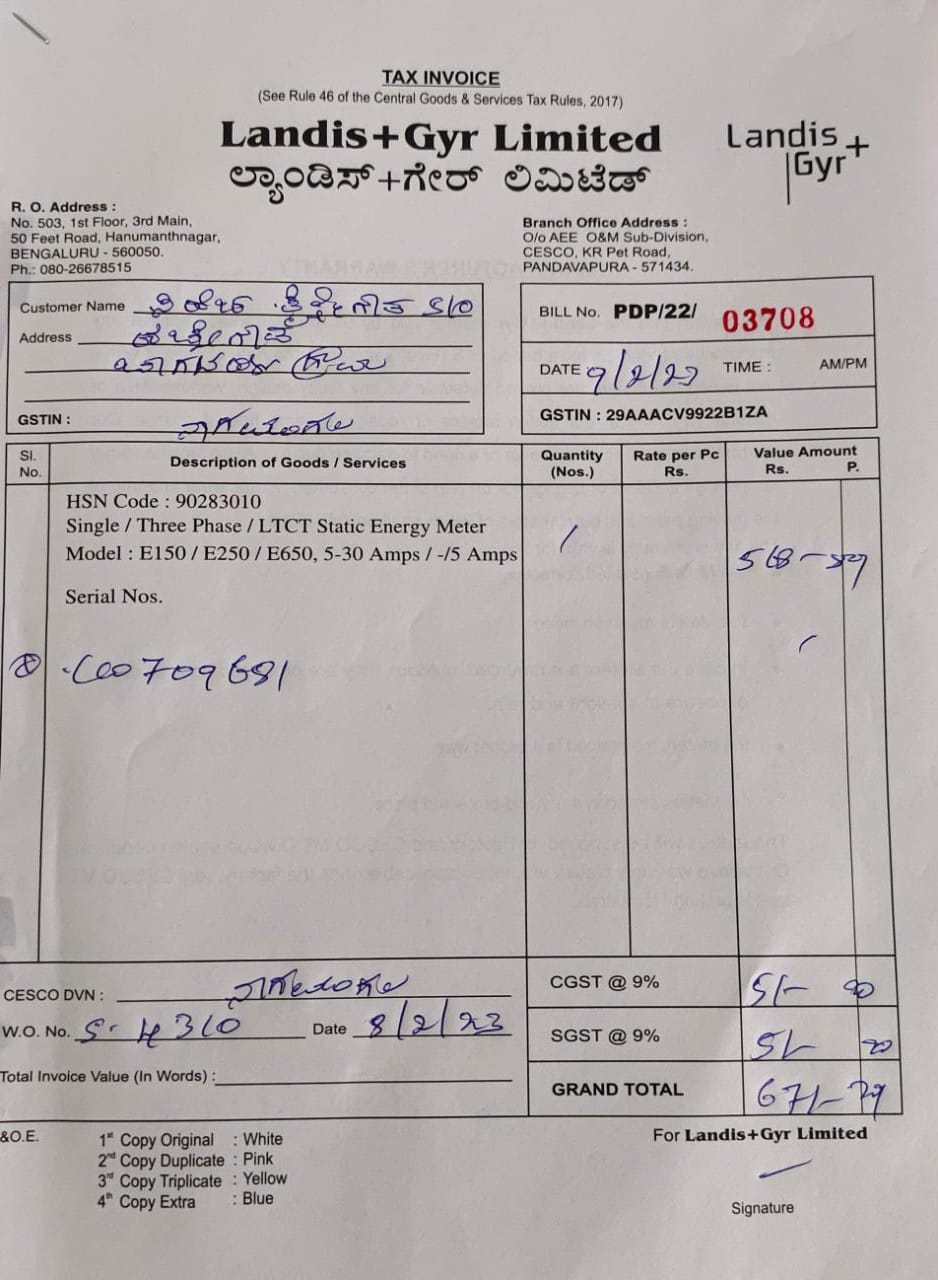 TAX INVOICE
(See Rule 46 of the Central Goods & Services Tax Rules, 2017)
Landis+Gyr Limited
ಲ್ಯಾಂಡಿಸ್+ಗೇರ್ ಲಿಮಿಟೆಡ್
Landis
Gyr+
R. O. Address :
No. 503, 1st Floor, 3rd Main,
50 Feet Road, Hanumanthnagar,
BENGALURU - 560050.
Ph.: 080-26678515
Branch Office Address :
O/o AEE O&M Sub-Division,
CESCO, KR Pet Road,
PANDAVAPURA - 571434.
Customer Name S/O
Address
GSTIN :
BILL No. PDP/22/ 03708
DATE 9/2/23 TIME : AM/PM
GSTIN : 29AAACV9922B1ZA
Sl. No. Description of Goods / Services Quantity (Nos.) Rate per Pc Rs. Value Amount Rs. P.
HSN Code : 90283010
Single / Three Phase / LTCT Static Energy Meter
Model : E150 / E250 / E650, 5-30 Amps / -/5 Amps 1 568
Serial Nos.
709681
CESCO DVN :
CGST @ 9% 51
W.O. No. Date 8/2/23
SGST @ 9% 51
Total Invoice Value (In Words) :
GRAND TOTAL 671
&O.E.
1st Copy Original : White
2nd Copy Duplicate : Pink
3rd Copy Triplicate : Yellow
4th Copy Extra : Blue
For Landis+Gyr Limited
Signature